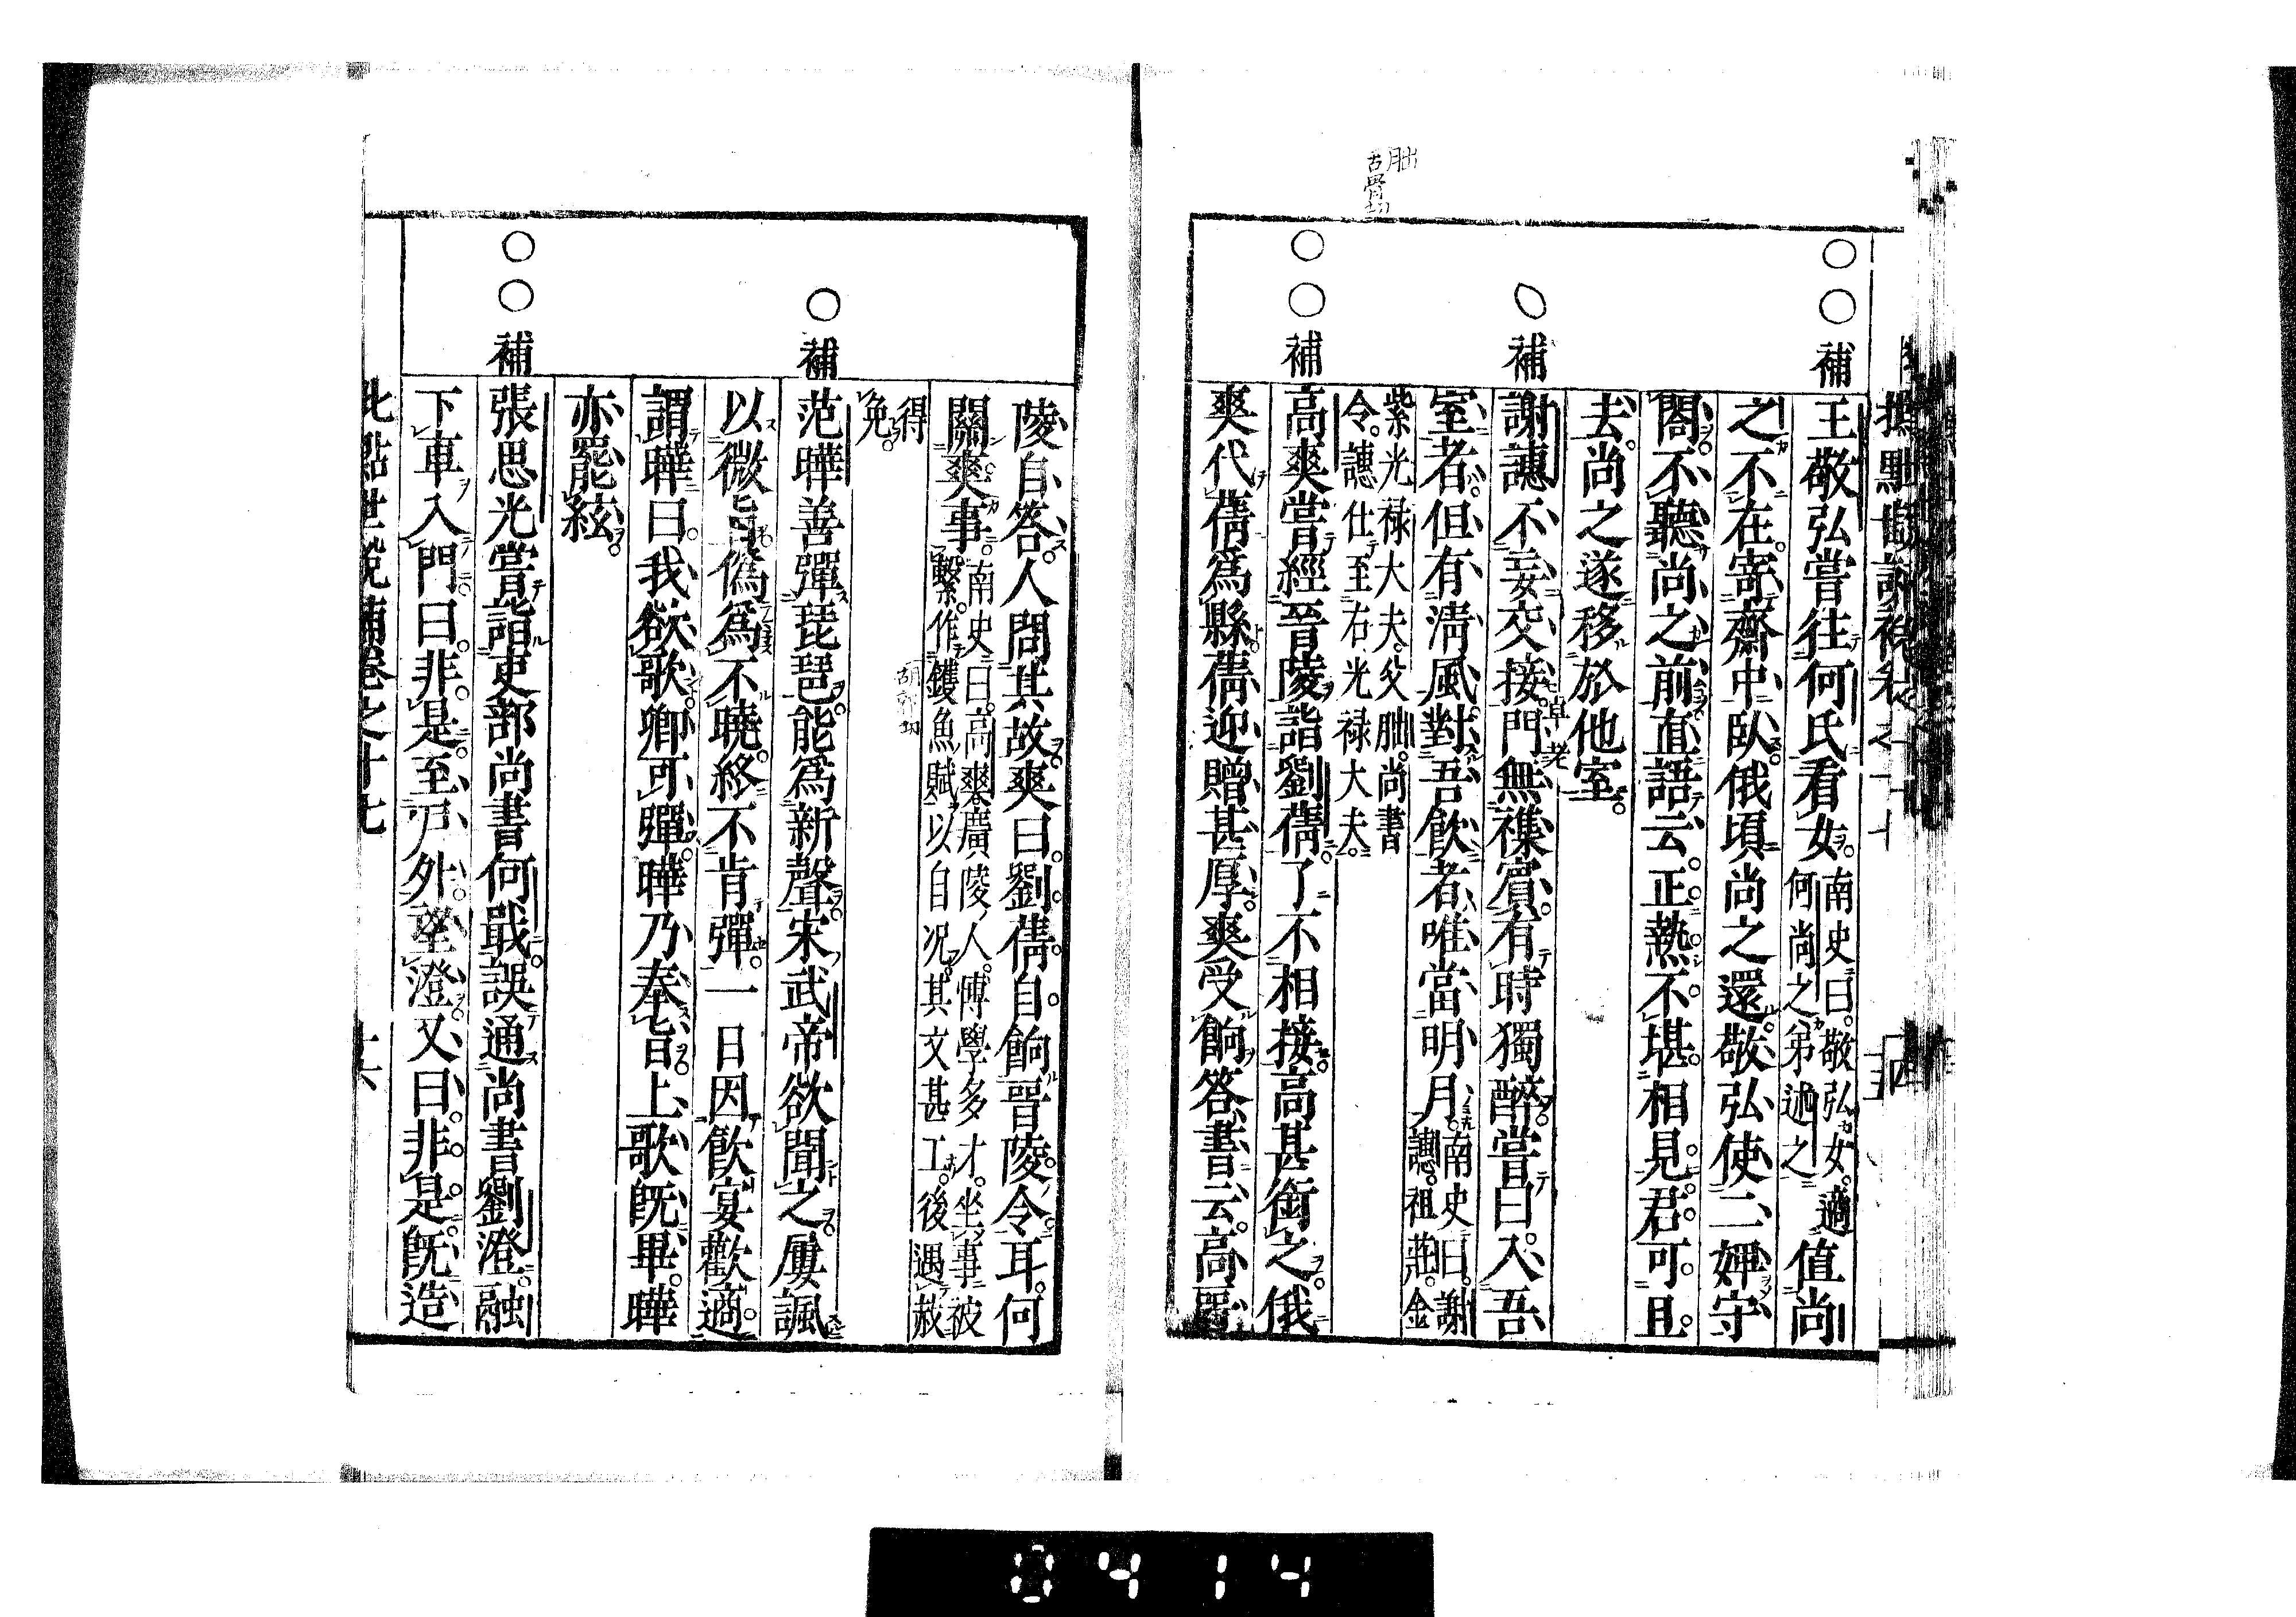 朏
古骨切
補
王敬弘嘗往何氏看女南史曰敬弘女適何尚之弟述之值尚
之不在寄齋中臥俄頃尚之還敬弘使二婢守
閤不聽尚之前直語云正熱不堪相見君可且
去尚之遂移於他室
補
謝譓不妄交接門無襍賓有時獨醉嘗曰入吾
卓老
室者但有淸風對吾飲者唯當明月南史曰謝譓祖莊金
紫光祿大夫父朏尚書令譓仕至右光祿大夫
補
高爽嘗經晉陵詣劉蒨了不相接高甚銜之俄
爽代蒨爲縣蒨迎贈甚厚爽受餉答書云高晉
陵自答人問其故爽曰劉蒨自餉晉陵令耳何
關爽事南史曰高爽廣陵人博學多才坐事被繫作鑊魚賦以自况其文甚工後遇赦
胡郭切
得免
補
范曄善彈琵琶能爲新聲宋武帝欲聞之屢諷
以微旨僞爲不曉終不肯彈一日因飲宴歡適
謂曄曰我欲歌卿可彈曄乃奉旨上歌旣畢曄
亦罷絃
補
張思光嘗詣吏部尚書何戢誤通尚書劉澄融
下車入門曰非是至戶外望澄又曰非是旣造
世說補卷之十七